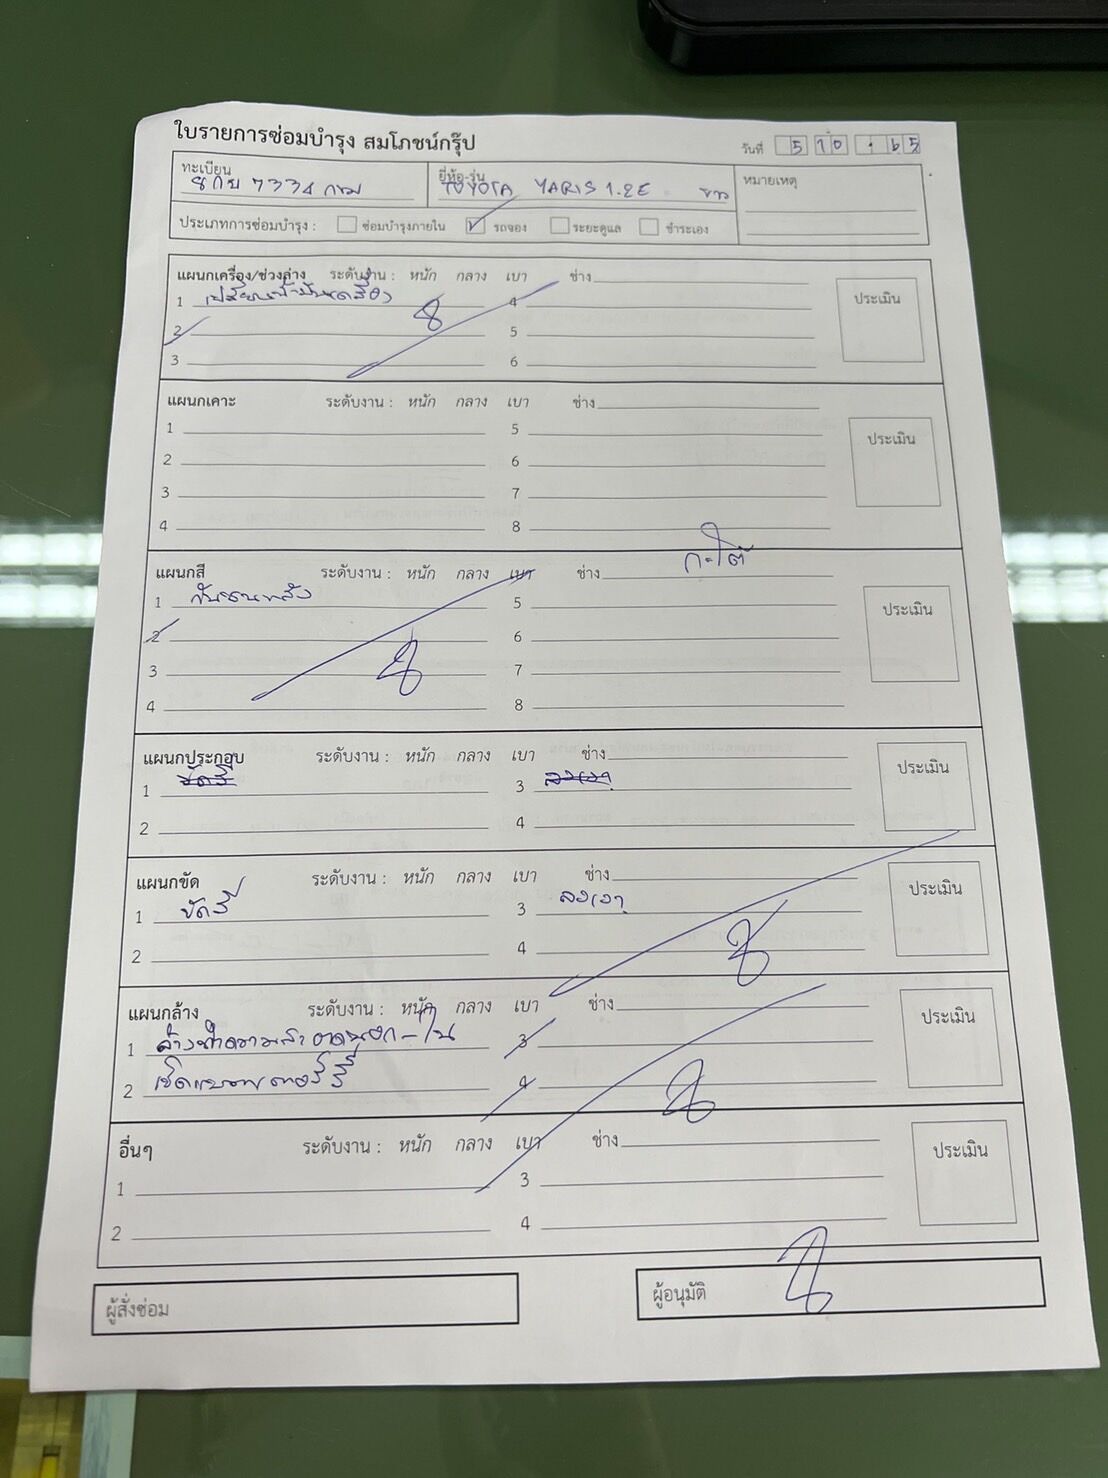 ใบรายการซ่อมบำรุง สมโภชน์กรุ๊ป
วันที่ 5 10 65
ทะเบียน
8กข 7334 กทม
ยี่ห้อ-รุ่น
TOYOTA YARIS 1.2E ขาว
หมายเหตุ
ประเภทการซ่อมบำรุง : ซ่อมบำรุงภายใน รถจอง ระยะดูแล ชำระเอง
แผนกเครื่อง/ช่วงล่าง ระดับงาน : หนัก กลาง เบา ช่าง
ประเมิน
1 เปลี่ยนน้ำมันเครื่อง 4
2 5
3 6
แผนกเคาะ ระดับงาน : หนัก กลาง เบา ช่าง
ประเมิน
1 5
2 6
3 7
4 8
แผนกสี ระดับงาน : หนัก กลาง เบา ช่าง
ประเมิน
1 กันชนหลัง 5
2 6
3 7
4 8
แผนกประกอบ ระดับงาน : หนัก กลาง เบา ช่าง
ประเมิน
1 ขัดสี 3 ลงเงา
2 4
แผนกขัด ระดับงาน : หนัก กลาง เบา ช่าง
ประเมิน
1 ขัดสี 3 ลงเงา
2 4
แผนกล้าง ระดับงาน : หนัก กลาง เบา ช่าง
ประเมิน
1 ล้างทำความสะอาดนอก-ใน 3
2 เช็คแบตเตอรี่ 4
อื่นๆ ระดับงาน : หนัก กลาง เบา ช่าง
ประเมิน
1 3
2 4
ผู้สั่งซ่อม
ผู้อนุมัติ